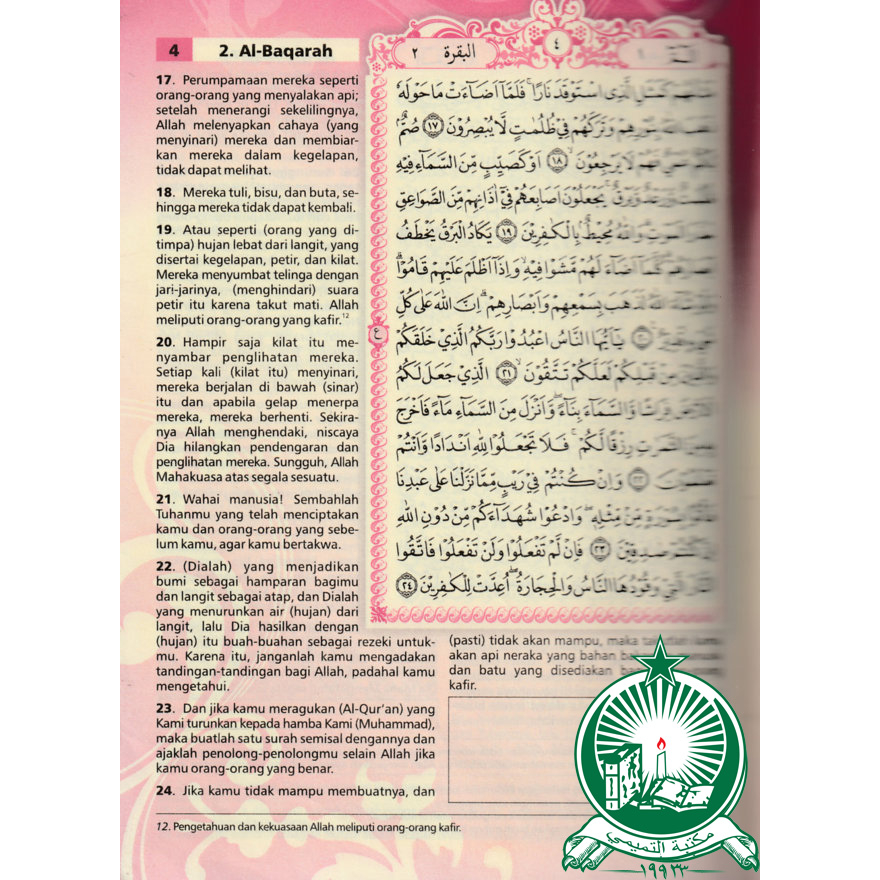 4
2. Al-Baqarah
17. Perumpamaan mereka seperti
orang-orang yang menyalakan api;
setelah menerangi sekelilingnya,
Allah melenyapkan cahaya (yang
menyinari) mereka dan membiar-
kan mereka dalam kegelapan,
tidak dapat melihat.
18. Mereka tuli, bisu, dan buta, se-
hingga mereka tidak dapat kembali.
19. Atau seperti (orang yang di-
timpa) hujan lebat dari langit, yang
disertai kegelapan, petir, dan kilat.
Mereka menyumbat telinga dengan
jari-jarinya, (menghindari) suara
petir itu karena takut mati. Allah
meliputi orang-orang yang kafir.12
20. Hampir saja kilat itu me-
nyambar penglihatan mereka.
Setiap kali (kilat itu) menyinari,
mereka berjalan di bawah (sinar)
itu dan apabila gelap menerpa
mereka, mereka berhenti. Sekira-
nya Allah menghendaki, niscaya
Dia hilangkan pendengaran dan
penglihatan mereka. Sungguh, Allah
Mahakuasa atas segala sesuatu.
21. Wahai manusia! Sembahlah
Tuhanmu yang telah menciptakan
kamu dan orang-orang yang sebe-
lum kamu, agar kamu bertakwa.
22. (Dialah) yang menjadikan
bumi sebagai hamparan bagimu
dan langit sebagai atap, dan Dialah
yang menurunkan air (hujan) dari
langit, lalu Dia hasilkan dengan
(hujan) itu buah-buahan sebagai rezeki untuk-
mu. Karena itu, janganlah kamu mengadakan
tandingan-tandingan bagi Allah, padahal kamu
mengetahui.
23. Dan jika kamu meragukan (Al-Qur'an) yang
Kami turunkan kepada hamba Kami (Muhammad),
maka buatlah satu surah semisal dengannya dan
ajaklah penolong-penolongmu selain Allah jika
kamu orang-orang yang benar.
24. Jika kamu tidak mampu membuatnya, dan
(pasti) tidak akan mampu, maka
akan api neraka yang bahan
dan batu yang disediakan
kafir.
٤
البقرة ٢
كَمَثَلِ الَّذِى اسْتَوْقَدَ نَارًا ۚ فَلَمَّآ اَضَاۤءَتْ مَا حَوْلَهٗ
اللّٰهُ بِنُوْرِهِمْ وَتَرَكَهُمْ فِيْ ظُلُمٰتٍ لَّا يُبْصِرُوْنَ ١٧ صُمٌّۢ
فَهُمْ لَا يَرْجِعُوْنَ ١٨ اَوْ كَصَيِّبٍ مِّنَ السَّمَاۤءِ فِيْهِ
وَّرَعْدٌ وَّبَرْقٌ ۚ يَجْعَلُوْنَ اَصَابِعَهُمْ فِيْٓ اٰذَانِهِمْ مِّنَ الصَّوَاعِقِ
الْمَوْتِ ۗ وَاللّٰهُ مُحِيْطٌۢ بِالْكٰفِرِيْنَ ١٩ يَكَادُ الْبَرْقُ يَخْطَفُ
كُلَّمَآ اَضَاۤءَ لَهُمْ مَّشَوْا فِيْهِ ۙ وَاِذَآ اَظْلَمَ عَلَيْهِمْ قَامُوْا ۗ
اللّٰهُ لَذَهَبَ بِسَمْعِهِمْ وَاَبْصَارِهِمْ ۗ اِنَّ اللّٰهَ عَلٰى كُلِّ
يٰٓاَيُّهَا النَّاسُ اعْبُدُوْا رَبَّكُمُ الَّذِيْ خَلَقَكُمْ
مِنْ قَبْلِكُمْ لَعَلَّكُمْ تَتَّقُوْنَ ٢١ الَّذِيْ جَعَلَ لَكُمُ
فِرَاشًا وَّالسَّمَاۤءَ بِنَاۤءً ۖ وَّاَنْزَلَ مِنَ السَّمَاۤءِ مَاۤءً فَاَخْرَجَ
الثَّمَرٰتِ رِزْقًا لَّكُمْ ۚ فَلَا تَجْعَلُوْا لِلّٰهِ اَنْدَادًا وَّاَنْتُمْ
وَاِنْ كُنْتُمْ فِيْ رَيْبٍ مِّمَّا نَزَّلْنَا عَلٰى عَبْدِنَا
بِسُوْرَةٍ مِّنْ مِّثْلِهٖ ۖ وَادْعُوْا شُهَدَاۤءَكُمْ مِّنْ دُوْنِ اللّٰهِ
كُنْتُمْ صٰدِقِيْنَ ٢٣ فَاِنْ لَّمْ تَفْعَلُوْا وَلَنْ تَفْعَلُوْا فَاتَّقُوا
النَّارَ الَّتِيْ وَقُوْدُهَا النَّاسُ وَالْحِجَارَةُ ۖ اُعِدَّتْ لِلْكٰفِرِيْنَ ٢٤
ع
12. Pengetahuan dan kekuasaan Allah meliputi orang-orang kafir.
مكتبة التميمي